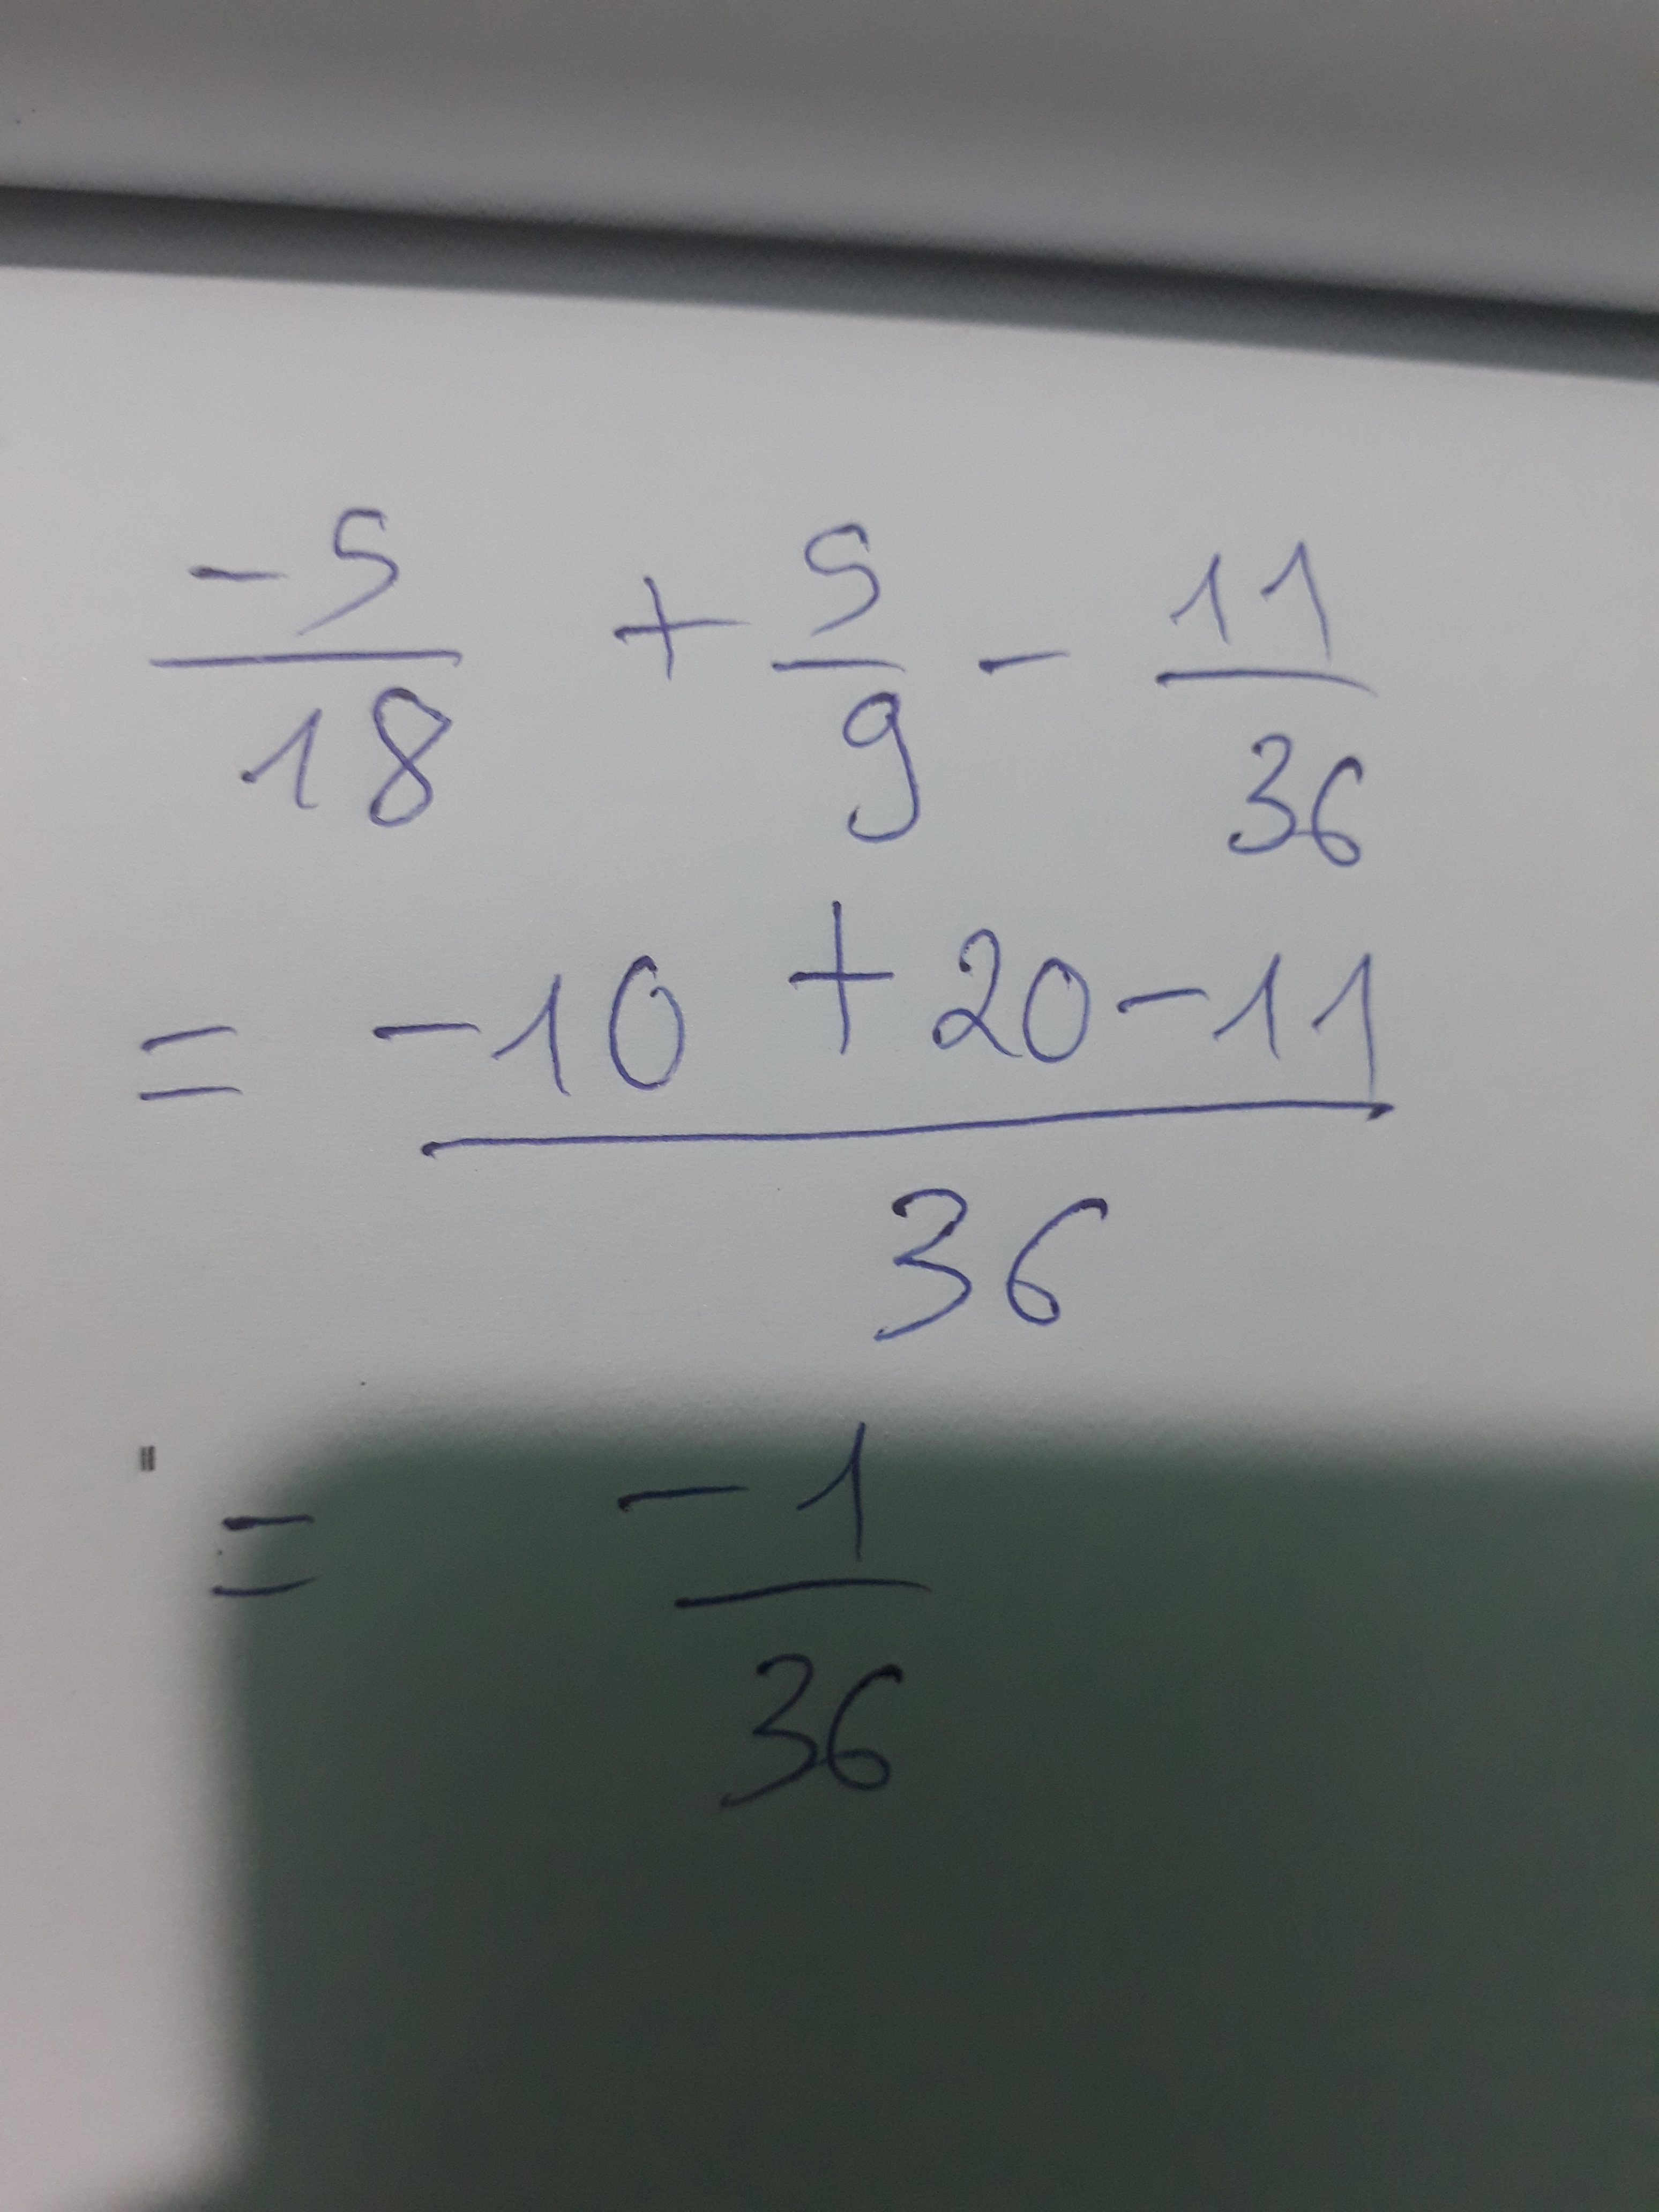 -5/18 + 5/9 - 11/36
= -10 + 20 - 11 / 36
= -1/36